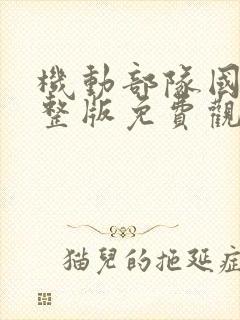 機動部隊國
整版免費觀
猫兒的拖延症